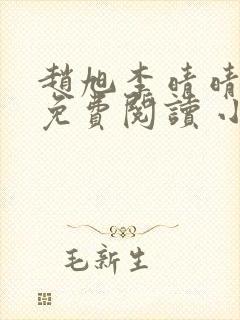 趙旭李晴晴
免費閱讀小
毛新生